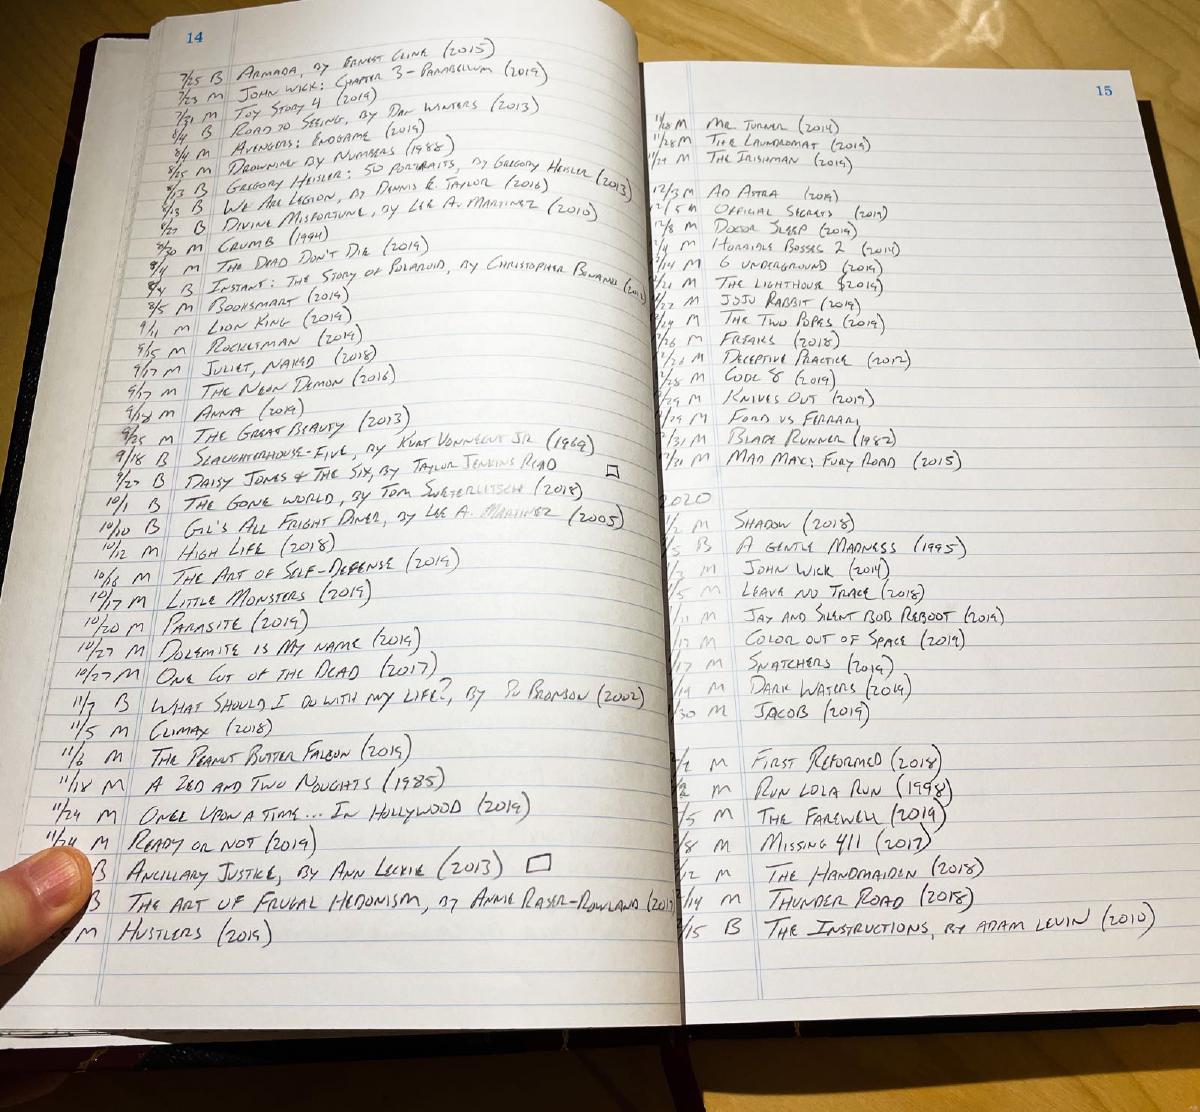 14
7/25 B ARMADA, BY ERNEST CLINE (2015)
7/23 M JOHN WICK: CHAPTER 3 - PARABELLUM (2019)
7/31 M TOY STORY 4 (2019)
8/4 B ROAD TO SEEING, BY DAN WINTERS (2013)
8/4 M AVENGERS: ENDGAME (2019)
8/25 M DROWNING BY NUMBERS (1988)
8/13 B GREGORY HEISLER: 50 PORTRAITS, BY GREGORY HEISLER (2013)
8/13 B WE ARE LEGION, BY DENNIS E. TAYLOR (2016)
8/27 B DIVINE MISFORTUNE, BY LEE A. MARTINEZ (2010)
8/30 M CRUMB (1994)
9/4 M THE DEAD DON'T DIE (2019)
B INSTANT: THE STORY OF POLAROID, BY CHRISTOPHER BONANOS
M BOOKSMART (2019)
9/11 M LION KING (2019)
9/15 M ROCKETMAN (2019)
9/17 M JULIET, NAKED (2018)
9/17 M THE NEON DEMON (2016)
9/18 M ANNA (2019)
9/25 M THE GREAT BEAUTY (2013)
9/18 B SLAUGHTERHOUSE-FIVE, BY KURT VONNEGUT JR (1969)
9/27 B DAISY JONES & THE SIX, BY TAYLOR JENKINS READ
10/1 B THE GONE WORLD, BY TOM SWETERLITSCH (2018)
10/10 B GIL'S ALL FRIGHT DINER, BY LEE A. MARTINEZ (2005)
10/12 M HIGH LIFE (2018)
10/16 M THE ART OF SELF-DEFENSE (2019)
10/17 M LITTLE MONSTERS (2019)
10/20 M PARASITE (2019)
10/27 M DOLEMITE IS MY NAME (2019)
10/27 M ONE CUT OF THE DEAD (2017)
11/7 B WHAT SHOULD I DO WITH MY LIFE?, BY PO BRONSON (2002)
11/5 M CLIMAX (2018)
11/6 M THE PEANUT BUTTER FALCON (2019)
11/18 M A ZED AND TWO NOUGHTS (1985)
11/24 M ONCE UPON A TIME... IN HOLLYWOOD (2019)
11/24 M READY OR NOT (2019)
B ANCILLARY JUSTICE, BY ANN LECKIE (2013)
B THE ART OF FRUGAL HEDONISM, BY ANNIE RASER-ROWLAND
M HUSTLERS (2019)
15
M MR. TURNER (2014)
11/28 M THE LAUNDROMAT (2019)
M THE IRISHMAN (2019)
12/3 M AD ASTRA (2019)
12/5 M OFFICIAL SECRETS (2019)
M DOCOR SLEEP (2019)
M HORRIBLE BOSSES 2 (2014)
M 6 UNDERGROUND (2019)
M THE LIGHTHOUSE (2019)
M JOJO RABBIT (2019)
M THE TWO POPES (2019)
M FREAKS (2018)
M DECEPTIVE PRACTICE (2012)
M CODE 8 (2019)
M KNIVES OUT (2019)
M FORD VS FERRARI
M BLADE RUNNER (1982)
M MAD MAX: FURY ROAD (2015)
2020
M SHADOW (2018)
B A GENTLE MADNESS (1995)
M JOHN WICK (2014)
M LEAVE NO TRACE (2018)
M JAY AND SILENT BOB REBOOT (2019)
M COLOR OUT OF SPACE (2019)
M SNATCHERS (2019)
M DARK WATERS (2019)
M JACOB (2019)
M FIRST REFORMED (2018)
M RUN LOLA RUN (1998)
M THE FAREWELL (2019)
M MISSING 411 (2017)
M THE HANDMAIDEN (2018)
M THUNDER ROAD (2018)
B THE INSTRUCTIONS, BY ADAM LEVIN (2010)